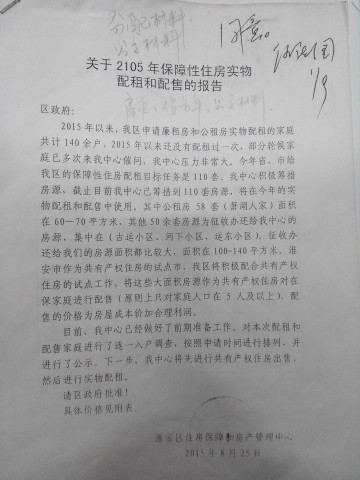 分配材料
公示材料
同意。
1/9
关于 2105 年保障性住房实物
配租和配售的报告
区政府：
2015 年以来，我区申请廉租房和公租房实物配租的家庭
共计 140 余户，2015 年以来还没有配租过一次，部分轮候家
庭已多次来我中心催问，我中心压力非常大。今年省、市给
我区的保障性住房配租目标任务是 110 套，我中心积极筹措
房源，截止目前我中心已筹措到 110 套房源，将在今年的实
物配租和配售中使用。其中公租房 58 套（萧湖人家）面积
在 60—70 平方米，其他 50 余套房源为征收办还给我中心的
房源，集中在（古运小区、河下小区、运东小区），征收办
还给我们的房源面积都比较大，面积在 100-140 平方米。淮
安市作为共有产权住房的试点市，我区将积极配合共有产权
住房的试点工作，将这些大面积房源作为共有产权住房对在
保家庭进行配售（原则上只对家庭人口在 5 人及以上），配
售的价格为房屋成本价加合理利润。
目前，我中心已经做好了前期准备工作，对本次配租和
配售家庭进行了逐一入户调查，按照申请时间进行排列，并
进行了公示。下一步，我中心将先进行共有产权住房出售，
然后进行实物配租。
请区政府批准！
具体价格见附表。
淮安区住房保障和房产管理中心
2015 年 8 月 25 日